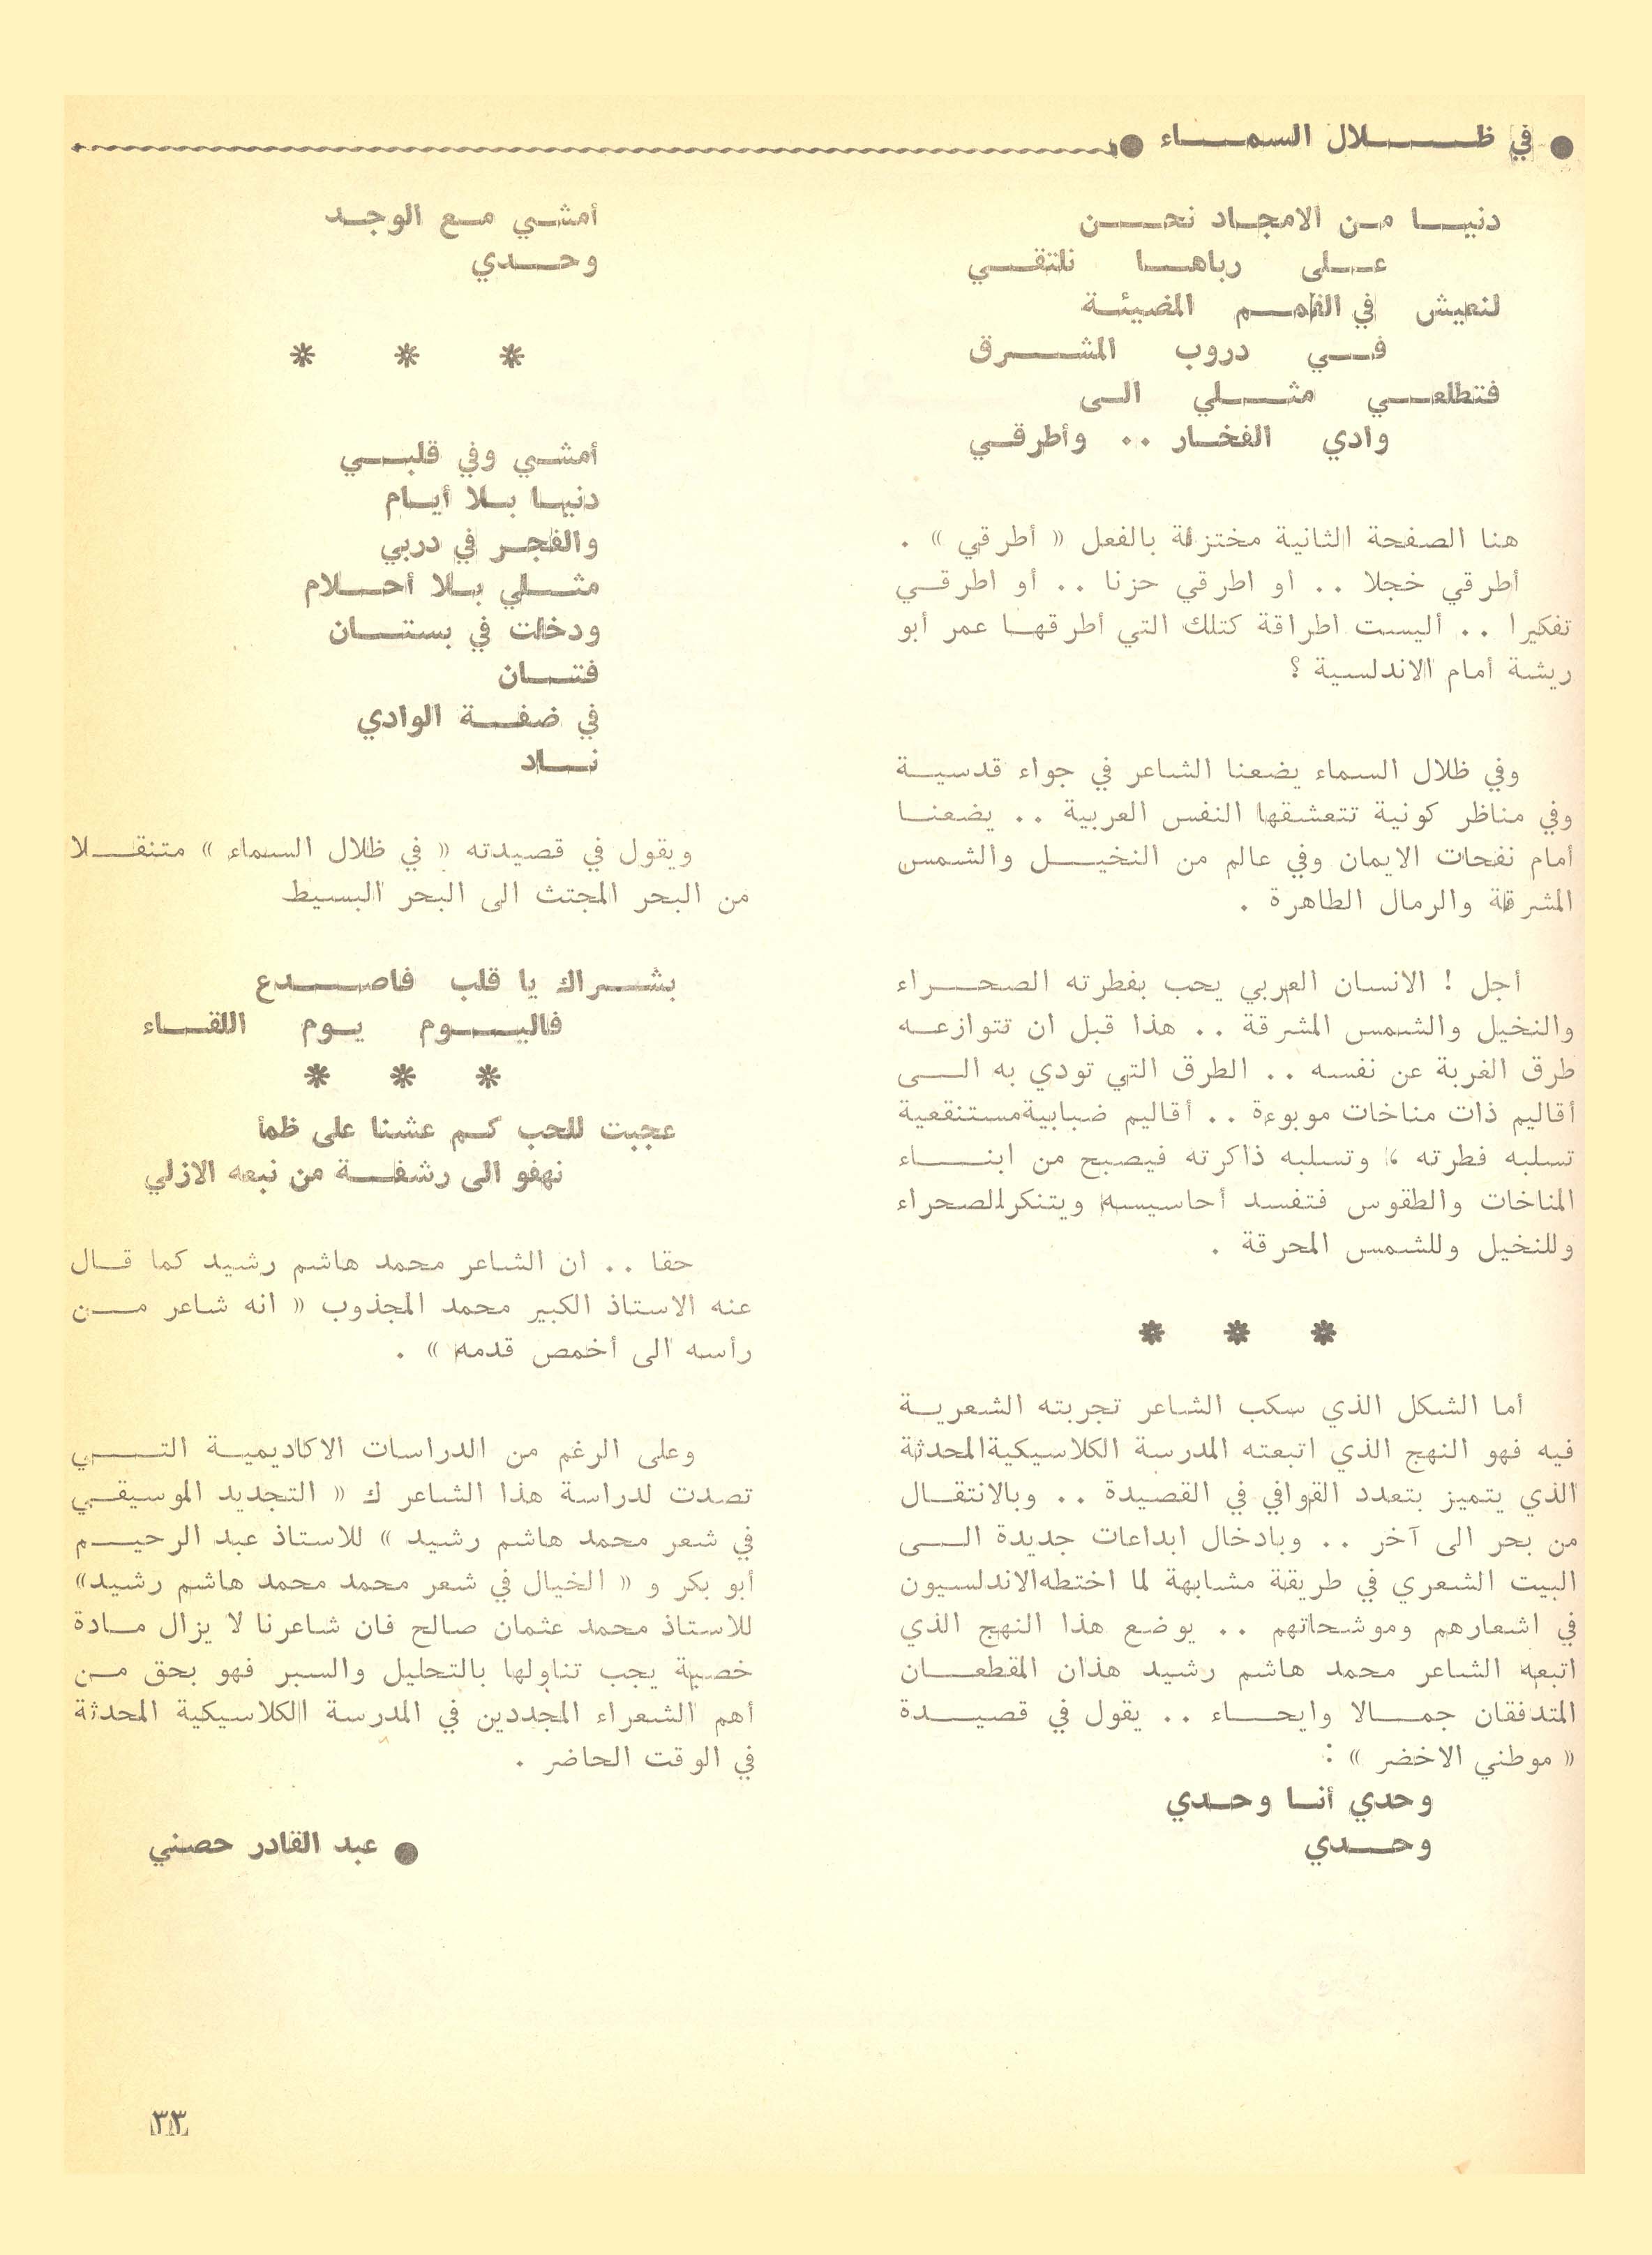 ● في ظـلال السمـاء ●
دنيـا مـن الامجـاد نحـن
عـلى رباهـا نلتقـي
لنعيش في القمـم المضيئـة
فـي دروب المشـرق
فتطلعـي مثـلي الـى
وادي الفخـار .. وأطرقـي
هنا الصفحة الثانية مختزلة بالفعل « أطرقي » .
أطرقي خجلا .. او اطرقي حزنا .. أو اطرقـي
تفكيرا .. أليست اطراقة كتلك التي أطرقهـا عمر أبو
ريشة أمام الاندلسية ؟
وفي ظلال السماء يضعنا الشاعر في جواء قدسيـة
وفي مناظر كونية تتعشقها النفس العربية .. يضعنـا
أمام نفحات الايمان وفي عالم من النخيـل والشمس
المشرقة والرمال الطاهرة .
أجل ! الانسان العربي يحب بفطرته الصحـراء
والنخيل والشمس المشرقة .. هذا قبل ان تتوازعـه
طرق الغربة عن نفسه .. الطرق التي تودي به الـى
أقاليم ذات مناخات موبوءة .. أقاليم ضبابية مستنقعية
تسلبه فطرته ، وتسلبه ذاكرته فيصبح من ابنـاء
المناخات والطقوس فتفسد أحاسيسه ويتنكر للصحراء
وللنخيل وللشمس المحرقة .
* * *
أما الشكل الذي سكب الشاعر تجربته الشعريـة
فيه فهو النهج الذي اتبعته المدرسة الكلاسيكية المحدثة
الذي يتميز بتعدد القوافي في القصيدة .. وبالانتقـال
من بحر الى آخر .. وبادخال ابداعات جديدة الـى
البيت الشعري في طريقة مشابهة لما اختطه الاندلسيون
في اشعارهم وموشحاتهم .. يوضع هذا النهج الذي
اتبعه الشاعر محمد هاشم رشيد هذان المقطعـان
المتدفقان جمـالا وايحـاء .. يقول في قصيـدة
« موطني الاخضر » :
وحدي أنـا وحـدي
وحـدي
أمشـي مـع الوجـد
وحـدي
* * *
أمشـي وفي قلبـي
دنيـا بـلا أيـام
والفجـر في دربي
مثـلي بـلا أحـلام
ودخلت في بستـان
فتـان
في ضفـة الوادي
نـاد
ويقول في قصيدته « في ظلال السماء » متنقـلا
من البحر المجتث الى البحر البسيط
بشـراك يا قلب فاصـدع
فاليـوم يـوم اللقـاء
* * *
عجبت للحب كـم عشنا على ظمأ
نهفو الى رشفـة من نبعه الازلي
حقا .. ان الشاعر محمد هاشم رشيد كما قـال
عنه الاستاذ الكبير محمد المجذوب « انه شاعر مـن
رأسه الى أخمص قدمه » .
وعلى الرغم من الدراسات الاكاديميـة التـي
تصدت لدراسة هذا الشاعر ك « التجديد الموسيقـي
في شعر محمد هاشم رشيد » للاستاذ عبد الرحيـم
أبو بكر و « الخيال في شعر محمد محمد هاشم رشيد»
للاستاذ محمد عثمان صالح فان شاعرنا لا يزال مـادة
خصبة يجب تناولها بالتحليل والسبر فهو بحق مـن
أهم الشعراء المجددين في المدرسة الكلاسيكية المحدثة
في الوقت الحاضر .
● عبد القادر حصني
٣٣